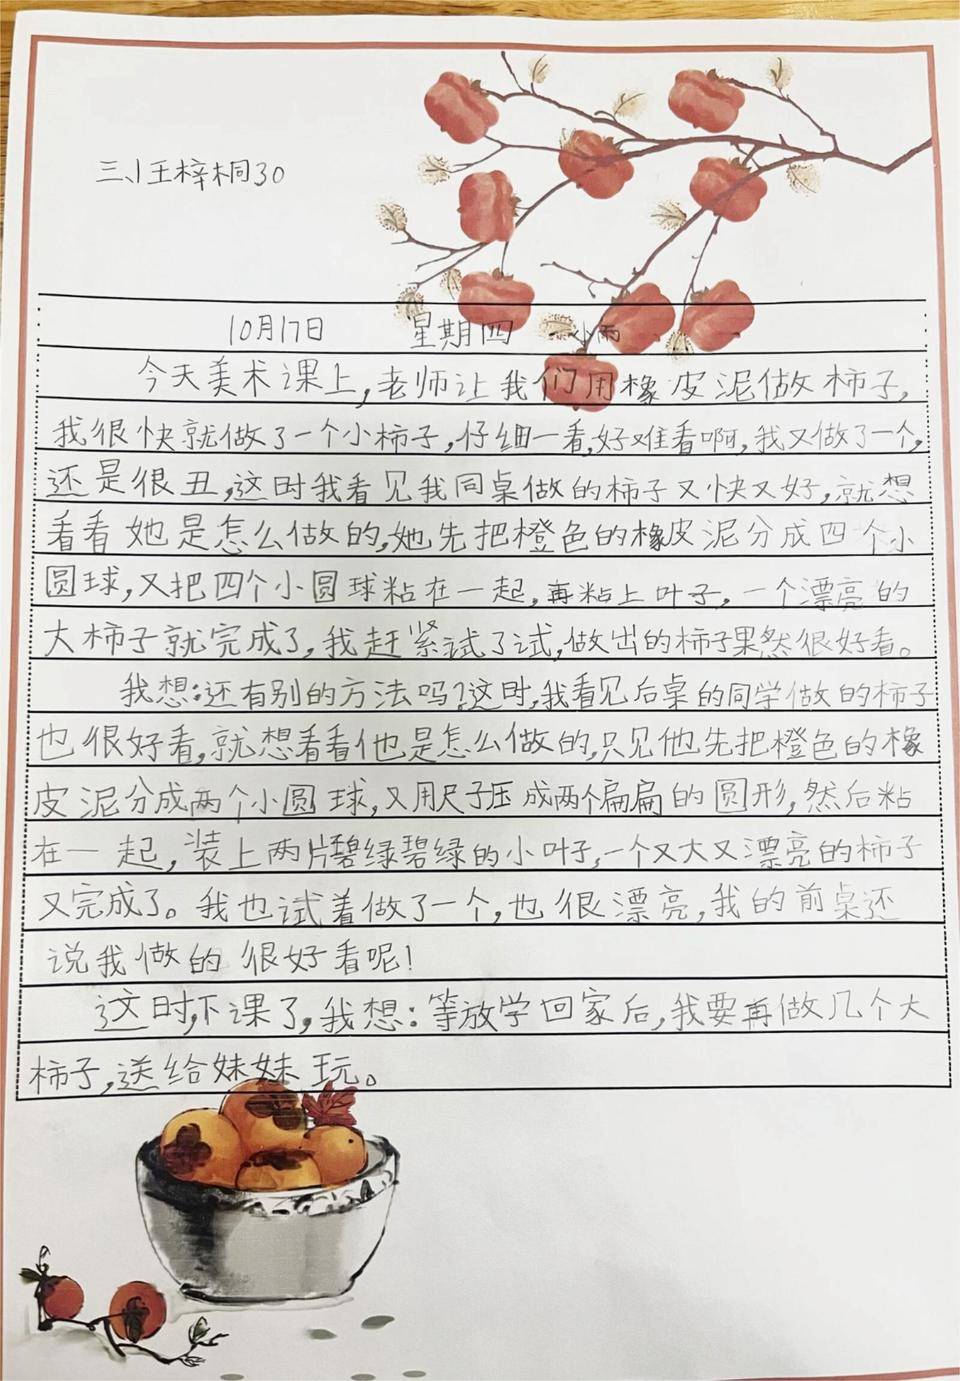 三、1王梓桐30
10月17日 星期四 小雨
今天美术课上,老师让我们用橡皮泥做柿子,
我很快就做了一个小柿子,仔细一看,好难看啊,我又做了一个,
还是很丑,这时我看见我同桌做的柿子又快又好,就想
看看她是怎么做的,她先把橙色的橡皮泥分成四个小
圆球,又把四个小圆球粘在一起,再粘上叶子,一个漂亮的
大柿子就完成了,我赶紧试了试,做出的柿子果然很好看。
我想:还有别的方法吗?这时,我看见后桌的同学做的柿子
也很好看,就想看看他是怎么做的,只见他先把橙色的橡
皮泥分成两个小圆球,又用尺子压成两个扁扁的圆形,然后粘
在一起,装上两片碧绿碧绿的小叶子,一个又大又漂亮的柿子
又完成了。我也试着做了一个,也很漂亮,我的前桌还
说我做的很好看呢!
这时,下课了,我想:等放学回家后,我要再做几个大
柿子,送给妹妹玩。